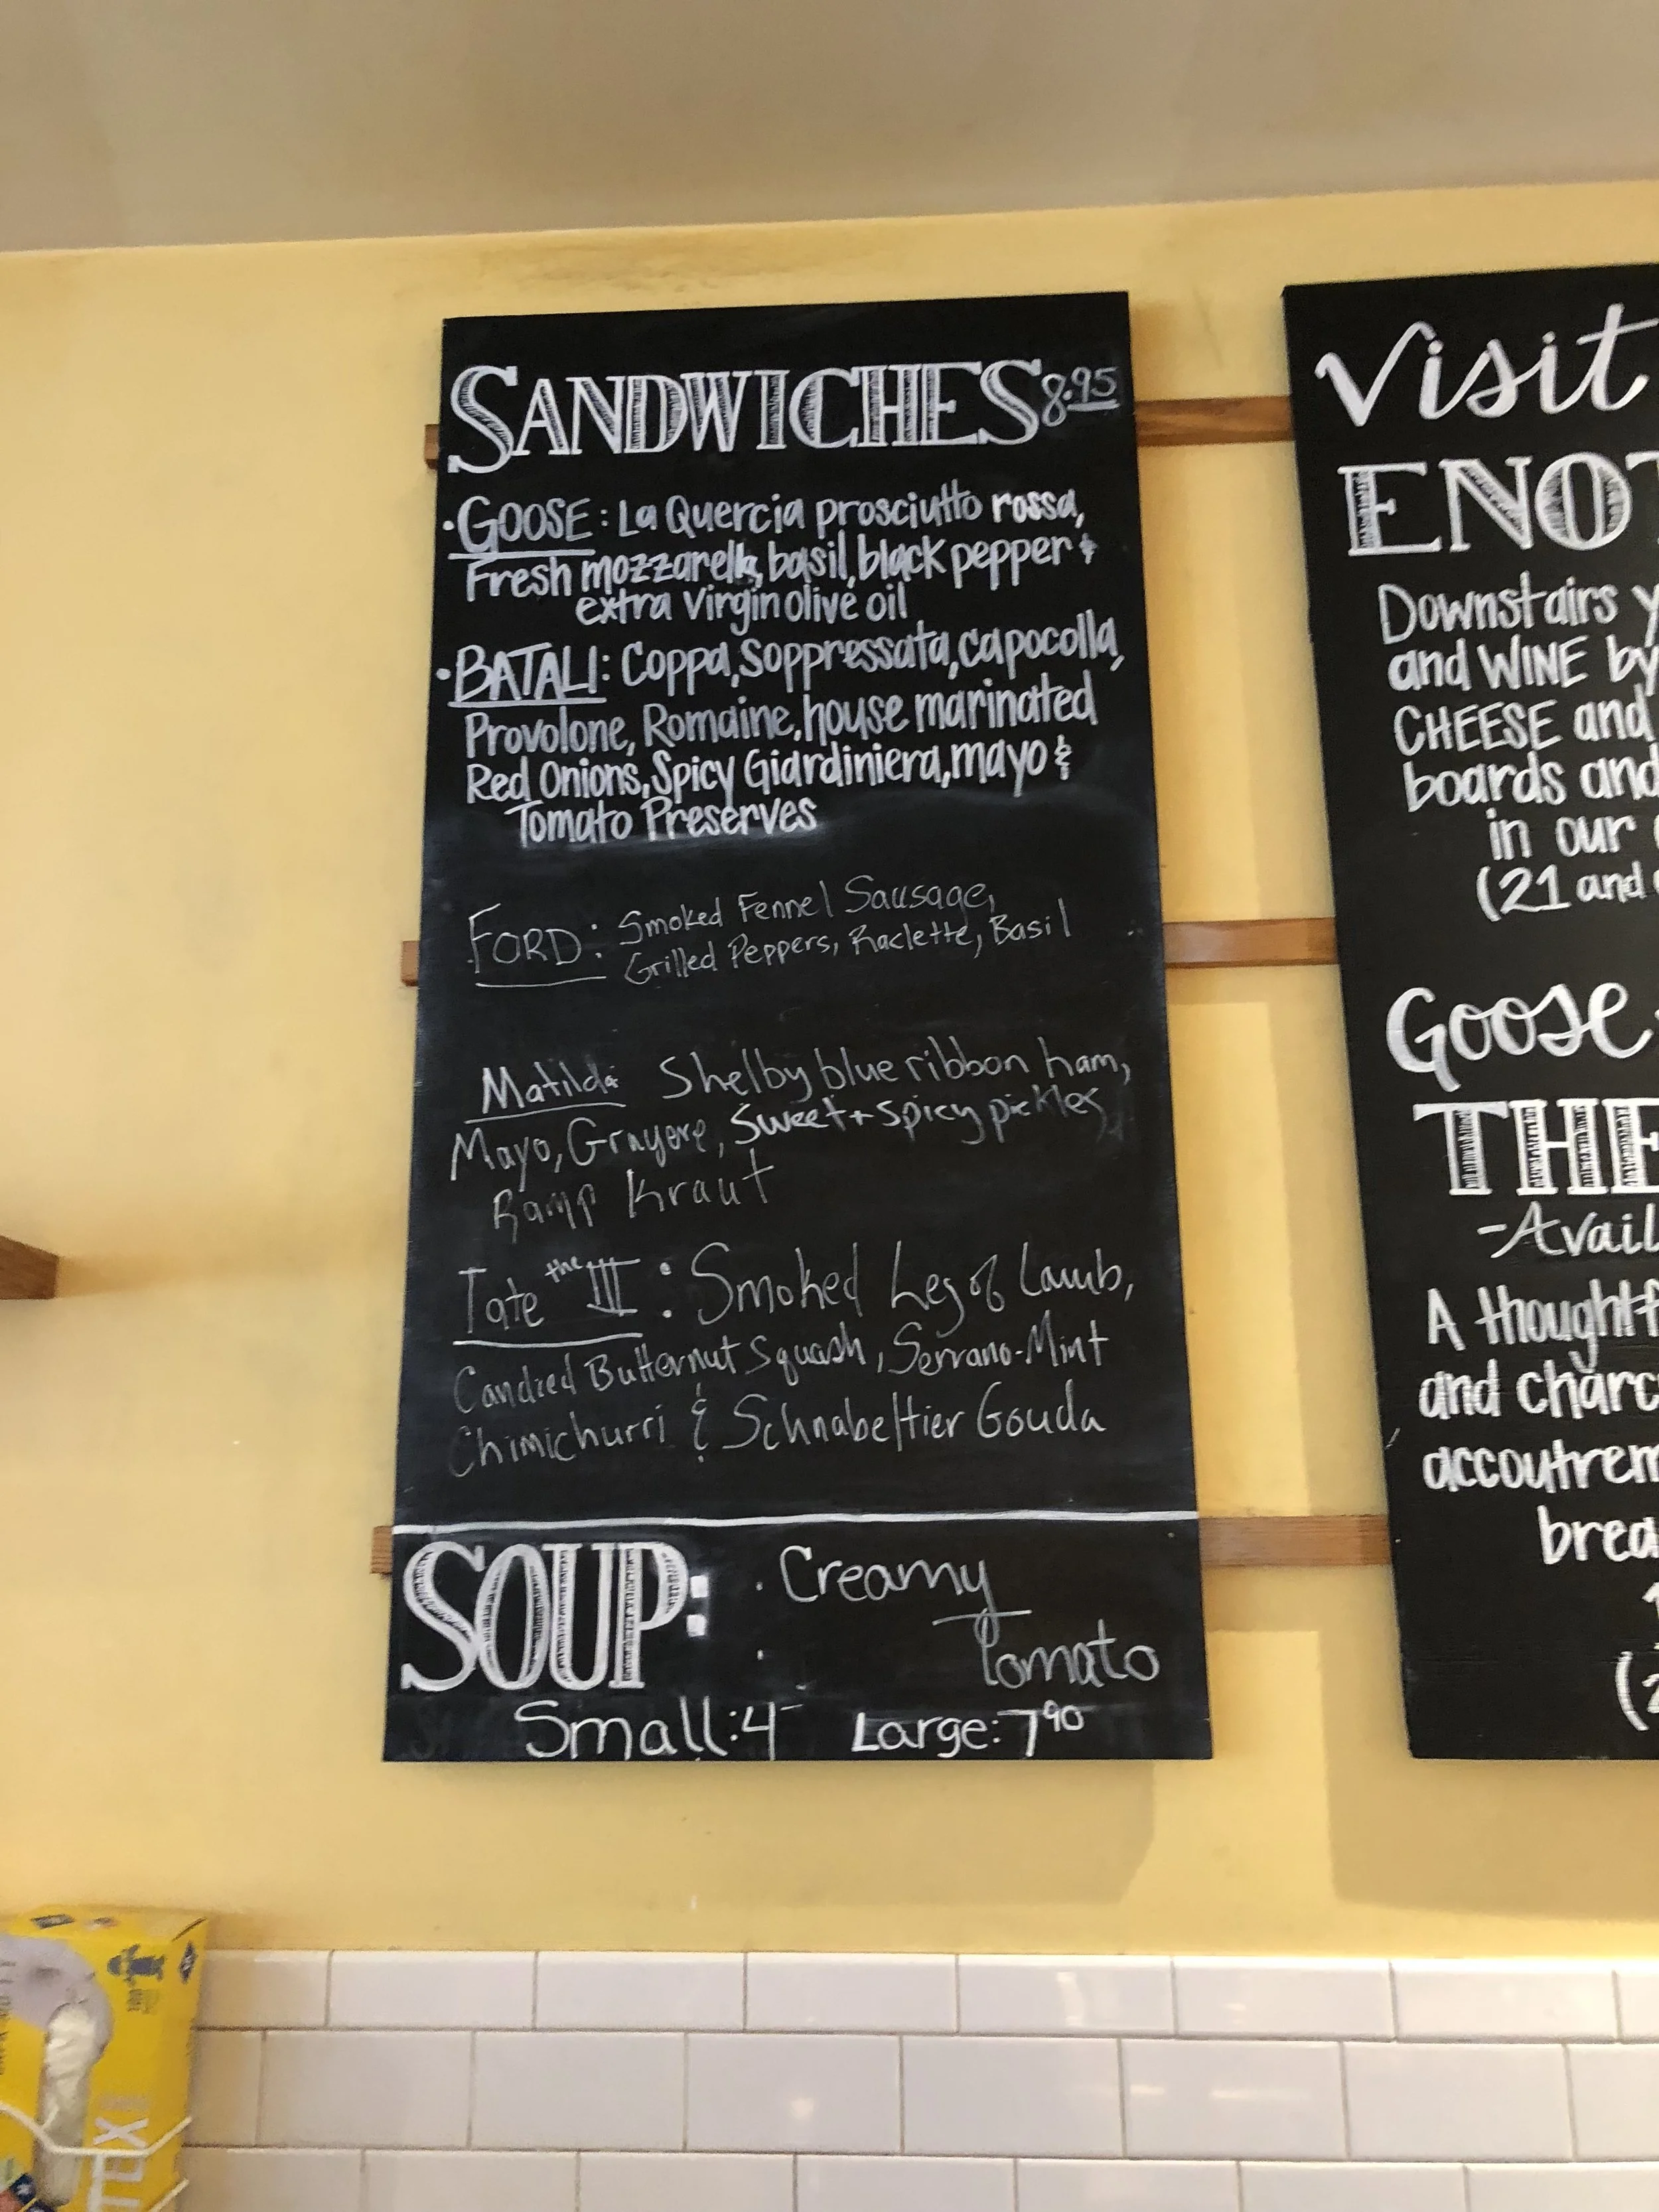 SANDWICHES 8.95
• GOOSE: La Quercia prosciutto rossa,
Fresh mozzarella, basil, black pepper &
extra virgin olive oil
• BATALI: Coppa, Soppressata, capocolla,
Provolone, Romaine, house marinated
Red Onions, Spicy Giardiniera, mayo &
Tomato Preserves
FORD: Smoked Fennel Sausage,
Grilled Peppers, Raclette, Basil
Matilda: Shelby blue ribbon ham,
Mayo, Gruyere, Sweet + spicy pickles
Ramp Kraut
Tate the III: Smoked Leg of Lamb,
Candied Butternut Squash, Serrano-Mint
Chimichurri & Schnabeltier Gouda
SOUP: • Creamy
• Tomato
Small: 4 Large: 7 90
Visit
ENOT
Downstairs y
and WINE by
CHEESE and
boards and
in our
(21 and
Goose
THE
-Avail
A thoughtf
and charc
accoutrem
brea